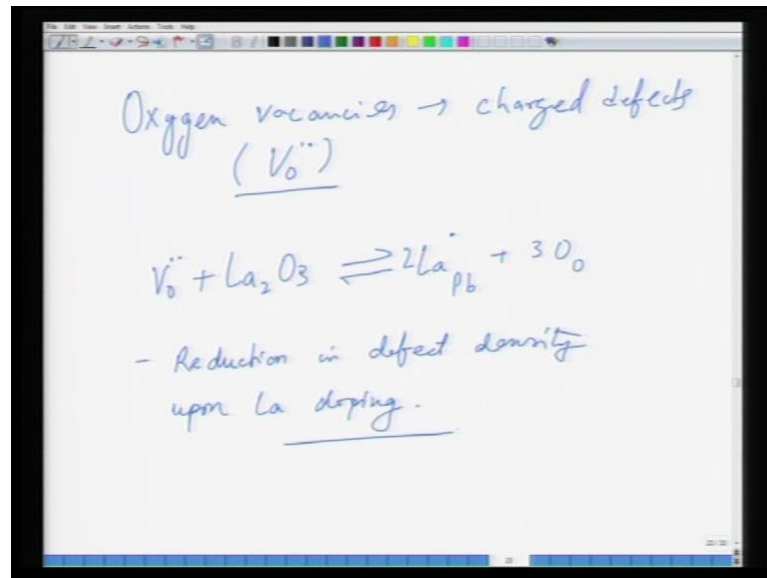 File Edit View Insert Actions Tools Help
Oxygen vacancies → charged defects
(V_O^{..})
V_O^{..} + La_2O_3 ⇌ 2La_{Pb}^{.} + 3O_O
- Reduction in defect density
upon La doping.